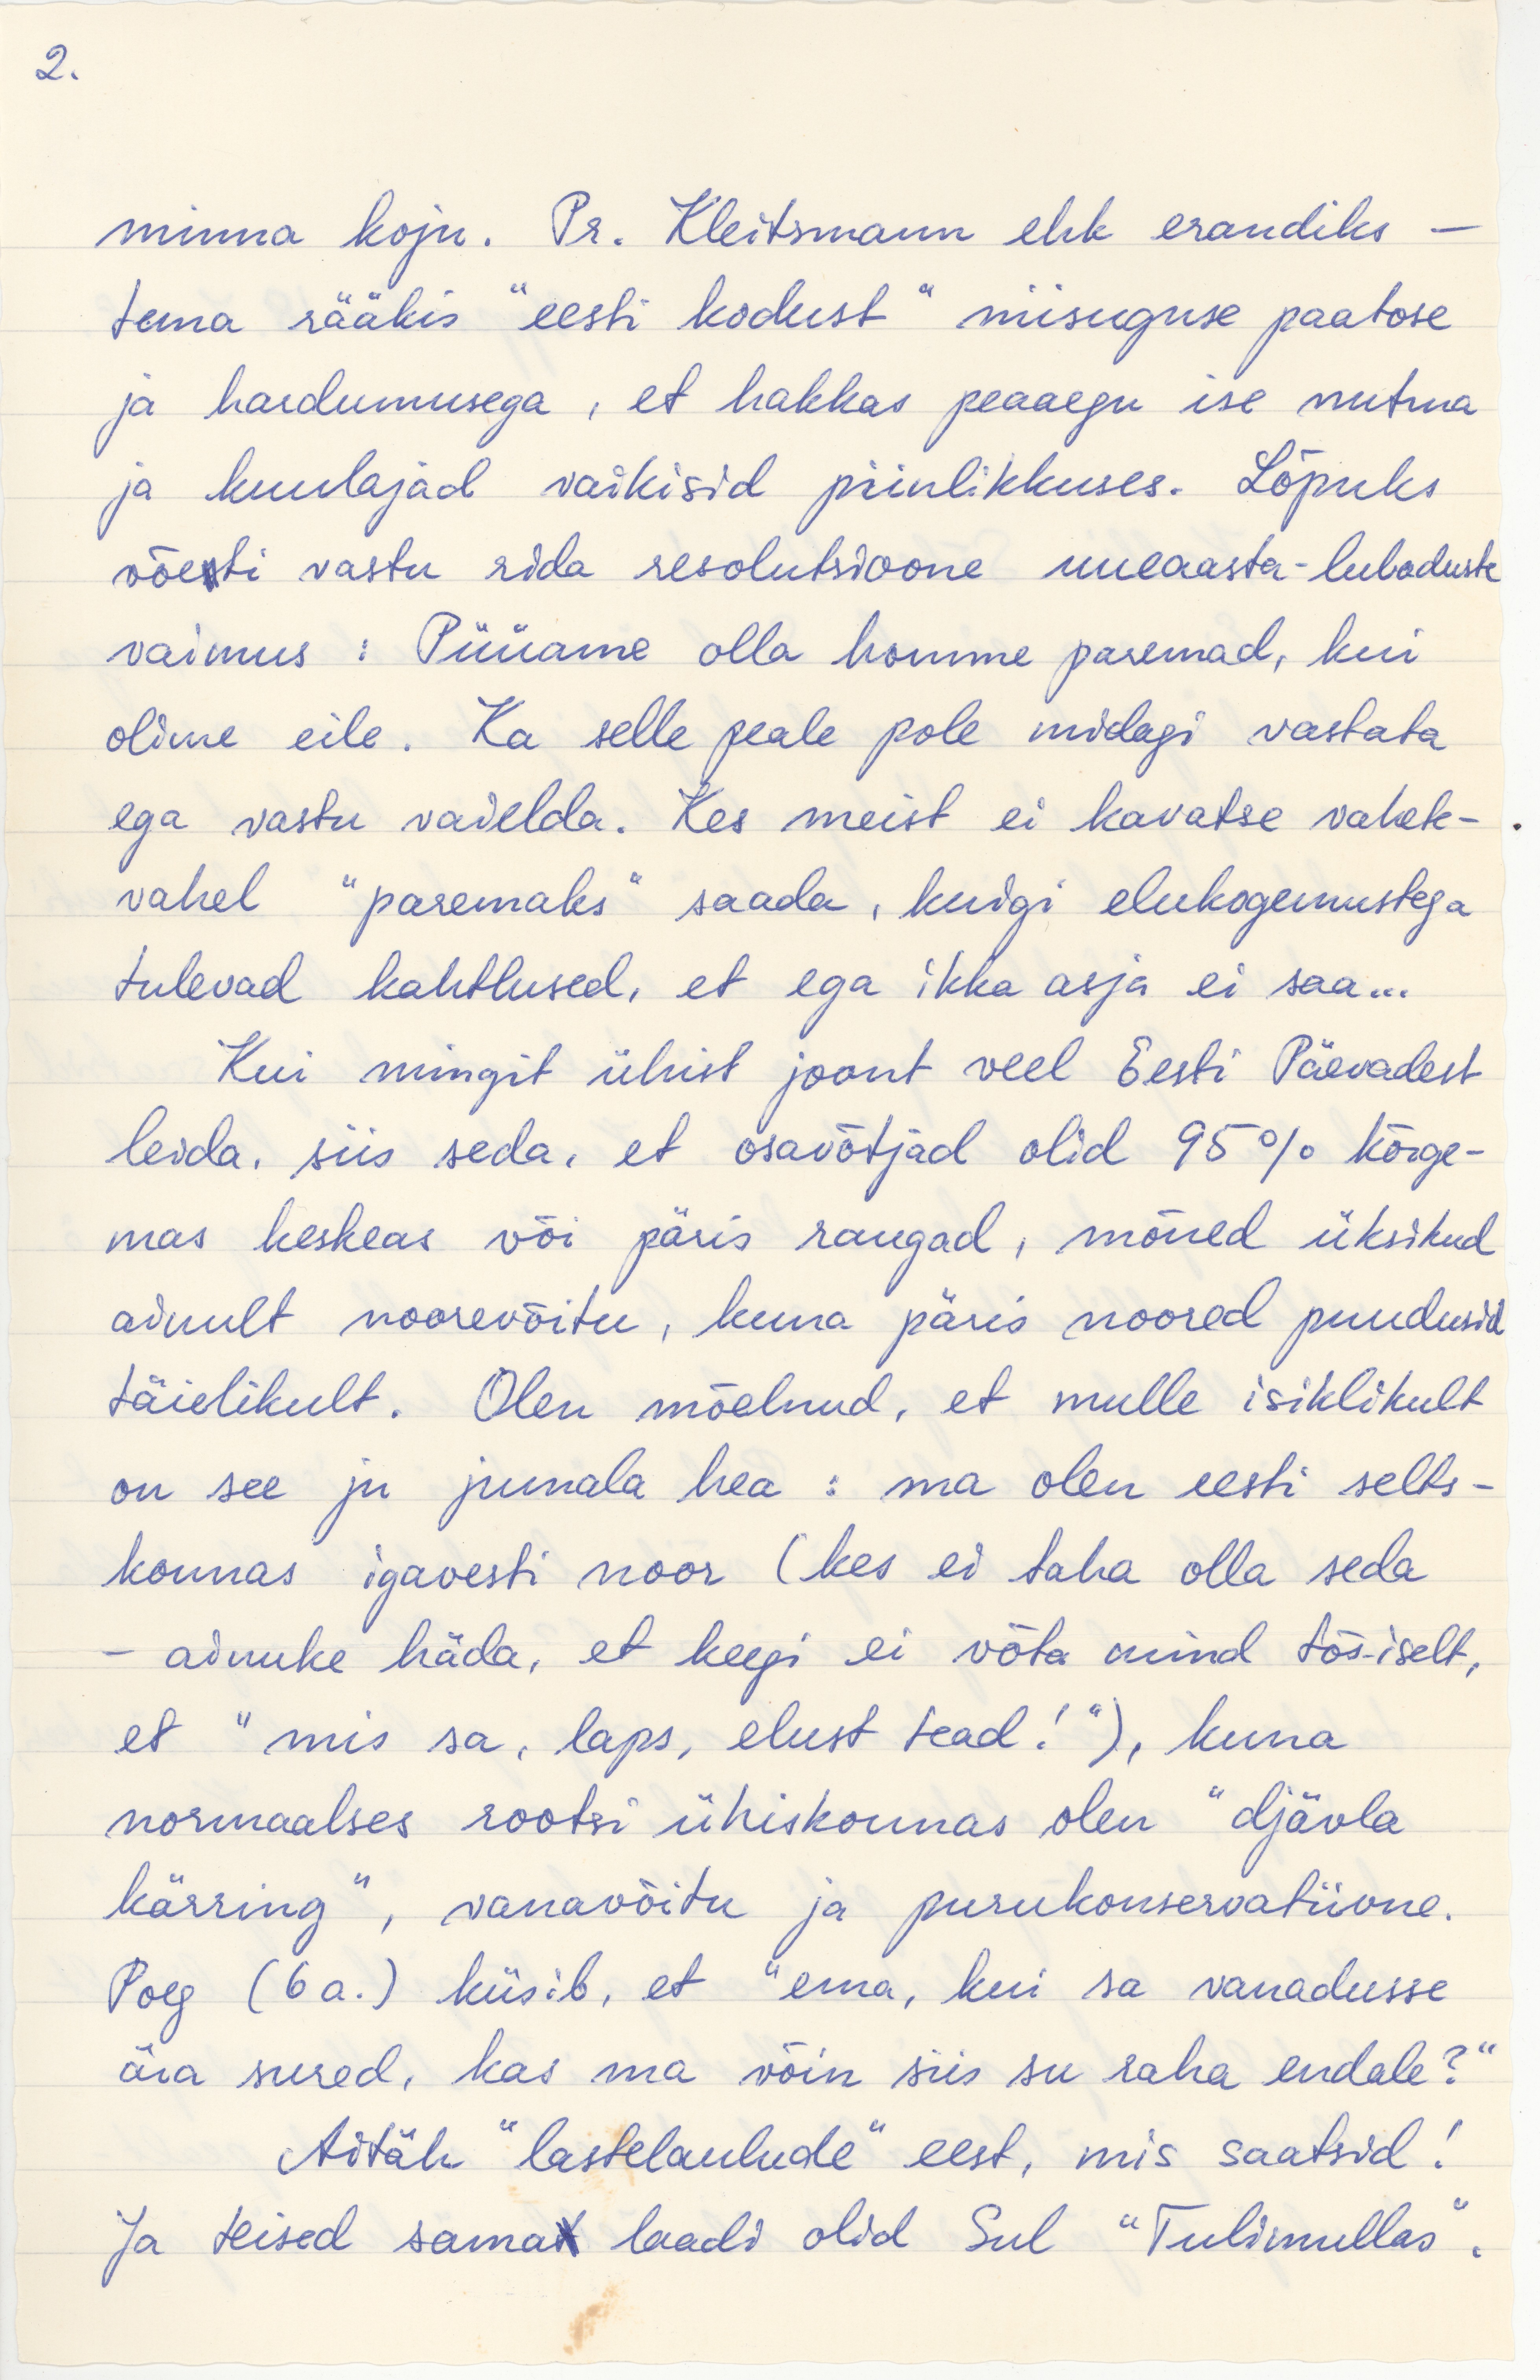 2.
minna koju. Pr. Kleitsmann ehk erandiks —
tema rääkis "eesti kodust" niisuguse paatose
ja hardumusega, et hakkas peaaegu ise nutma
ja kuulajad vaikisid piinlikkuses. Lõpuks
võeti vastu rida resolutsioone uueaasta-lubaduste
vaimus : Püüame olla homme paremad, kui
olime eile. Ka selle peale pole midagi vastata
ega vastu vaielda. Kes meist ei kavatse vahete-
vahel "paremaks" saada, kuigi elukogemustega
tulevad kahtlused, et ega ikka asja ei saa...
Kui mingit ühist joont veel Eesti Päevadest
leida, siis seda, et osavõtjad olid 95% kõrge-
mas keskeas või päris raugad, mõned üksikud
ainult noorevõitu, kuna päris noored puudusid
täielikult. Olen mõelnud, et mulle isiklikult
on see ju jumala hea : ma olen eesti selts-
konnas igavesti noor (kes ei taha olla seda
- ainuke häda, et keegi ei võta mind tõsiselt,
et "mis sa, laps, elust tead!"), kuna
normaalses rootsi ühiskonnas olen "djävla
kärring", vanavõitu ja purukonservatiivne.
Poeg (6 a.) küsib, et "ema, kui sa vanadusse
ära sured, kas ma võin siis su raha endale?"
Aitäh "lastelaulude" eest, mis saatsid!
Ja teised sama laadi olid Sul "Tulimullas".